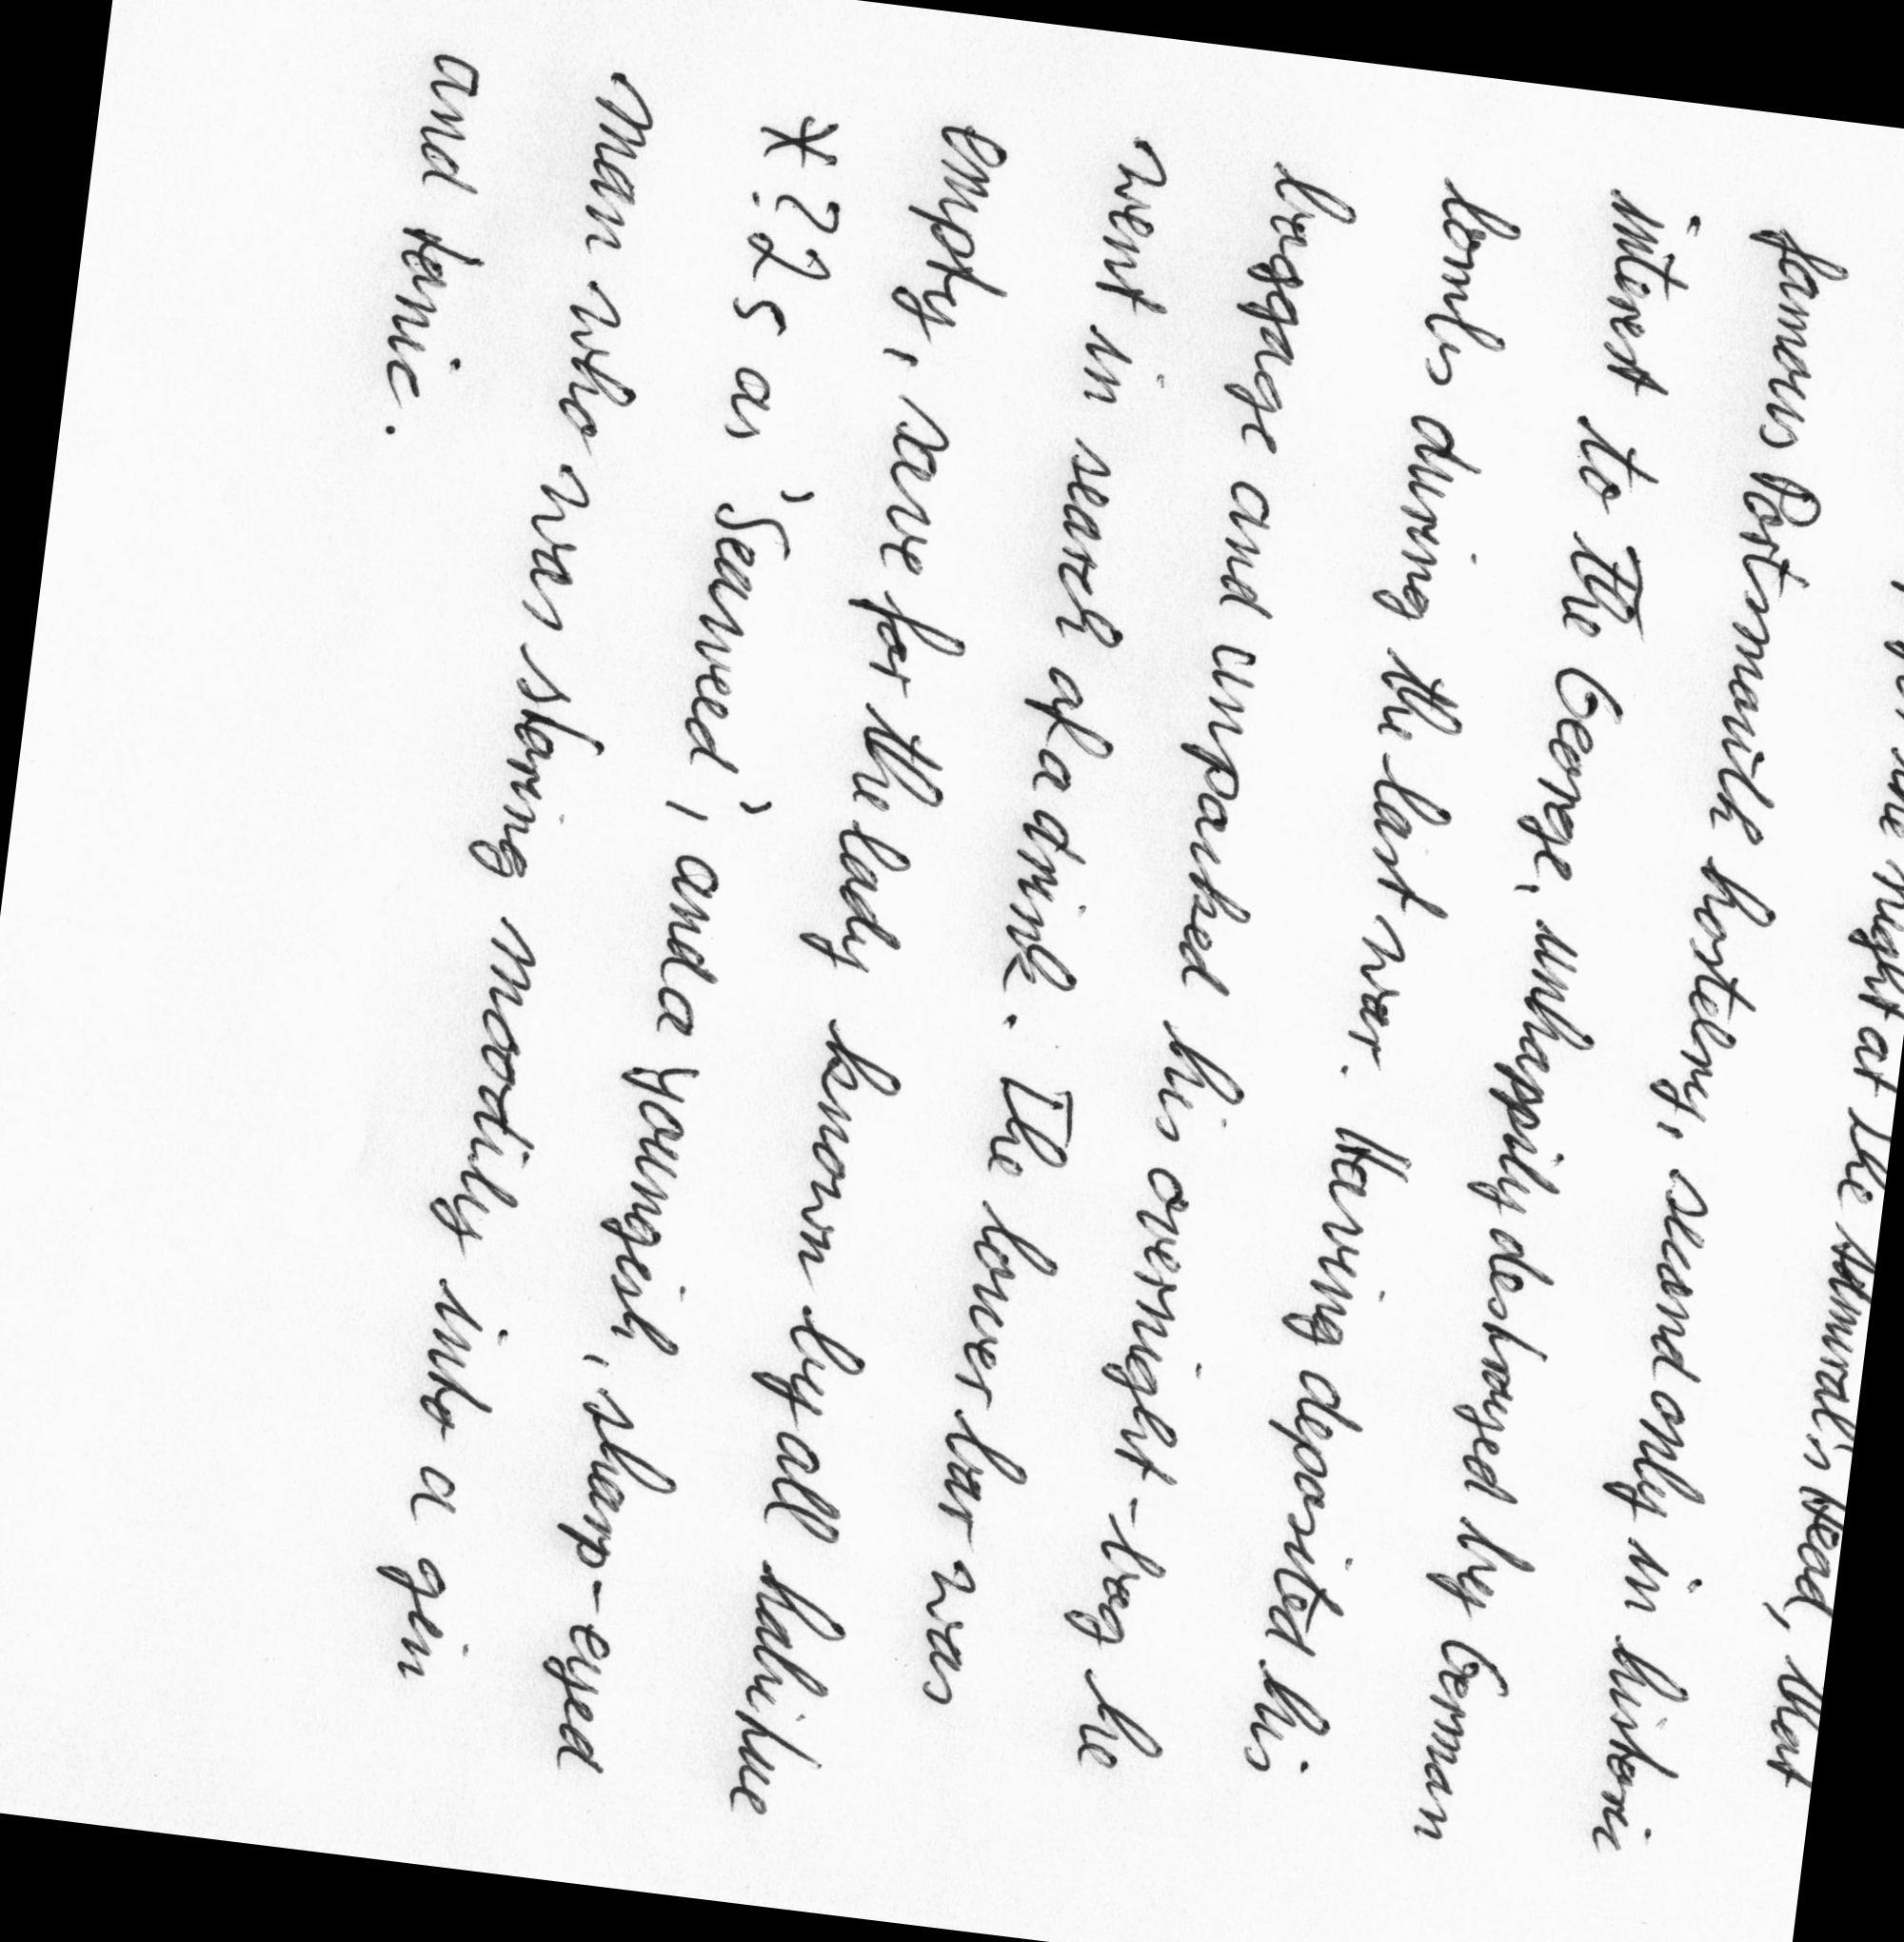 night at the Admiral's Head, that
famous Portsmouth hostelry, second only in historic
interest to the George, unhappily destroyed by German
bombs during the last war. Having deposited his
luggage and unpacked his overnight-bag he
went in search of a drink. The lower bar was
empty, save for the lady known by all habitue
*?2s as 'Seaweed', and a youngish, sharp-eyed
man who was staring moodily into a gin
and tonic.